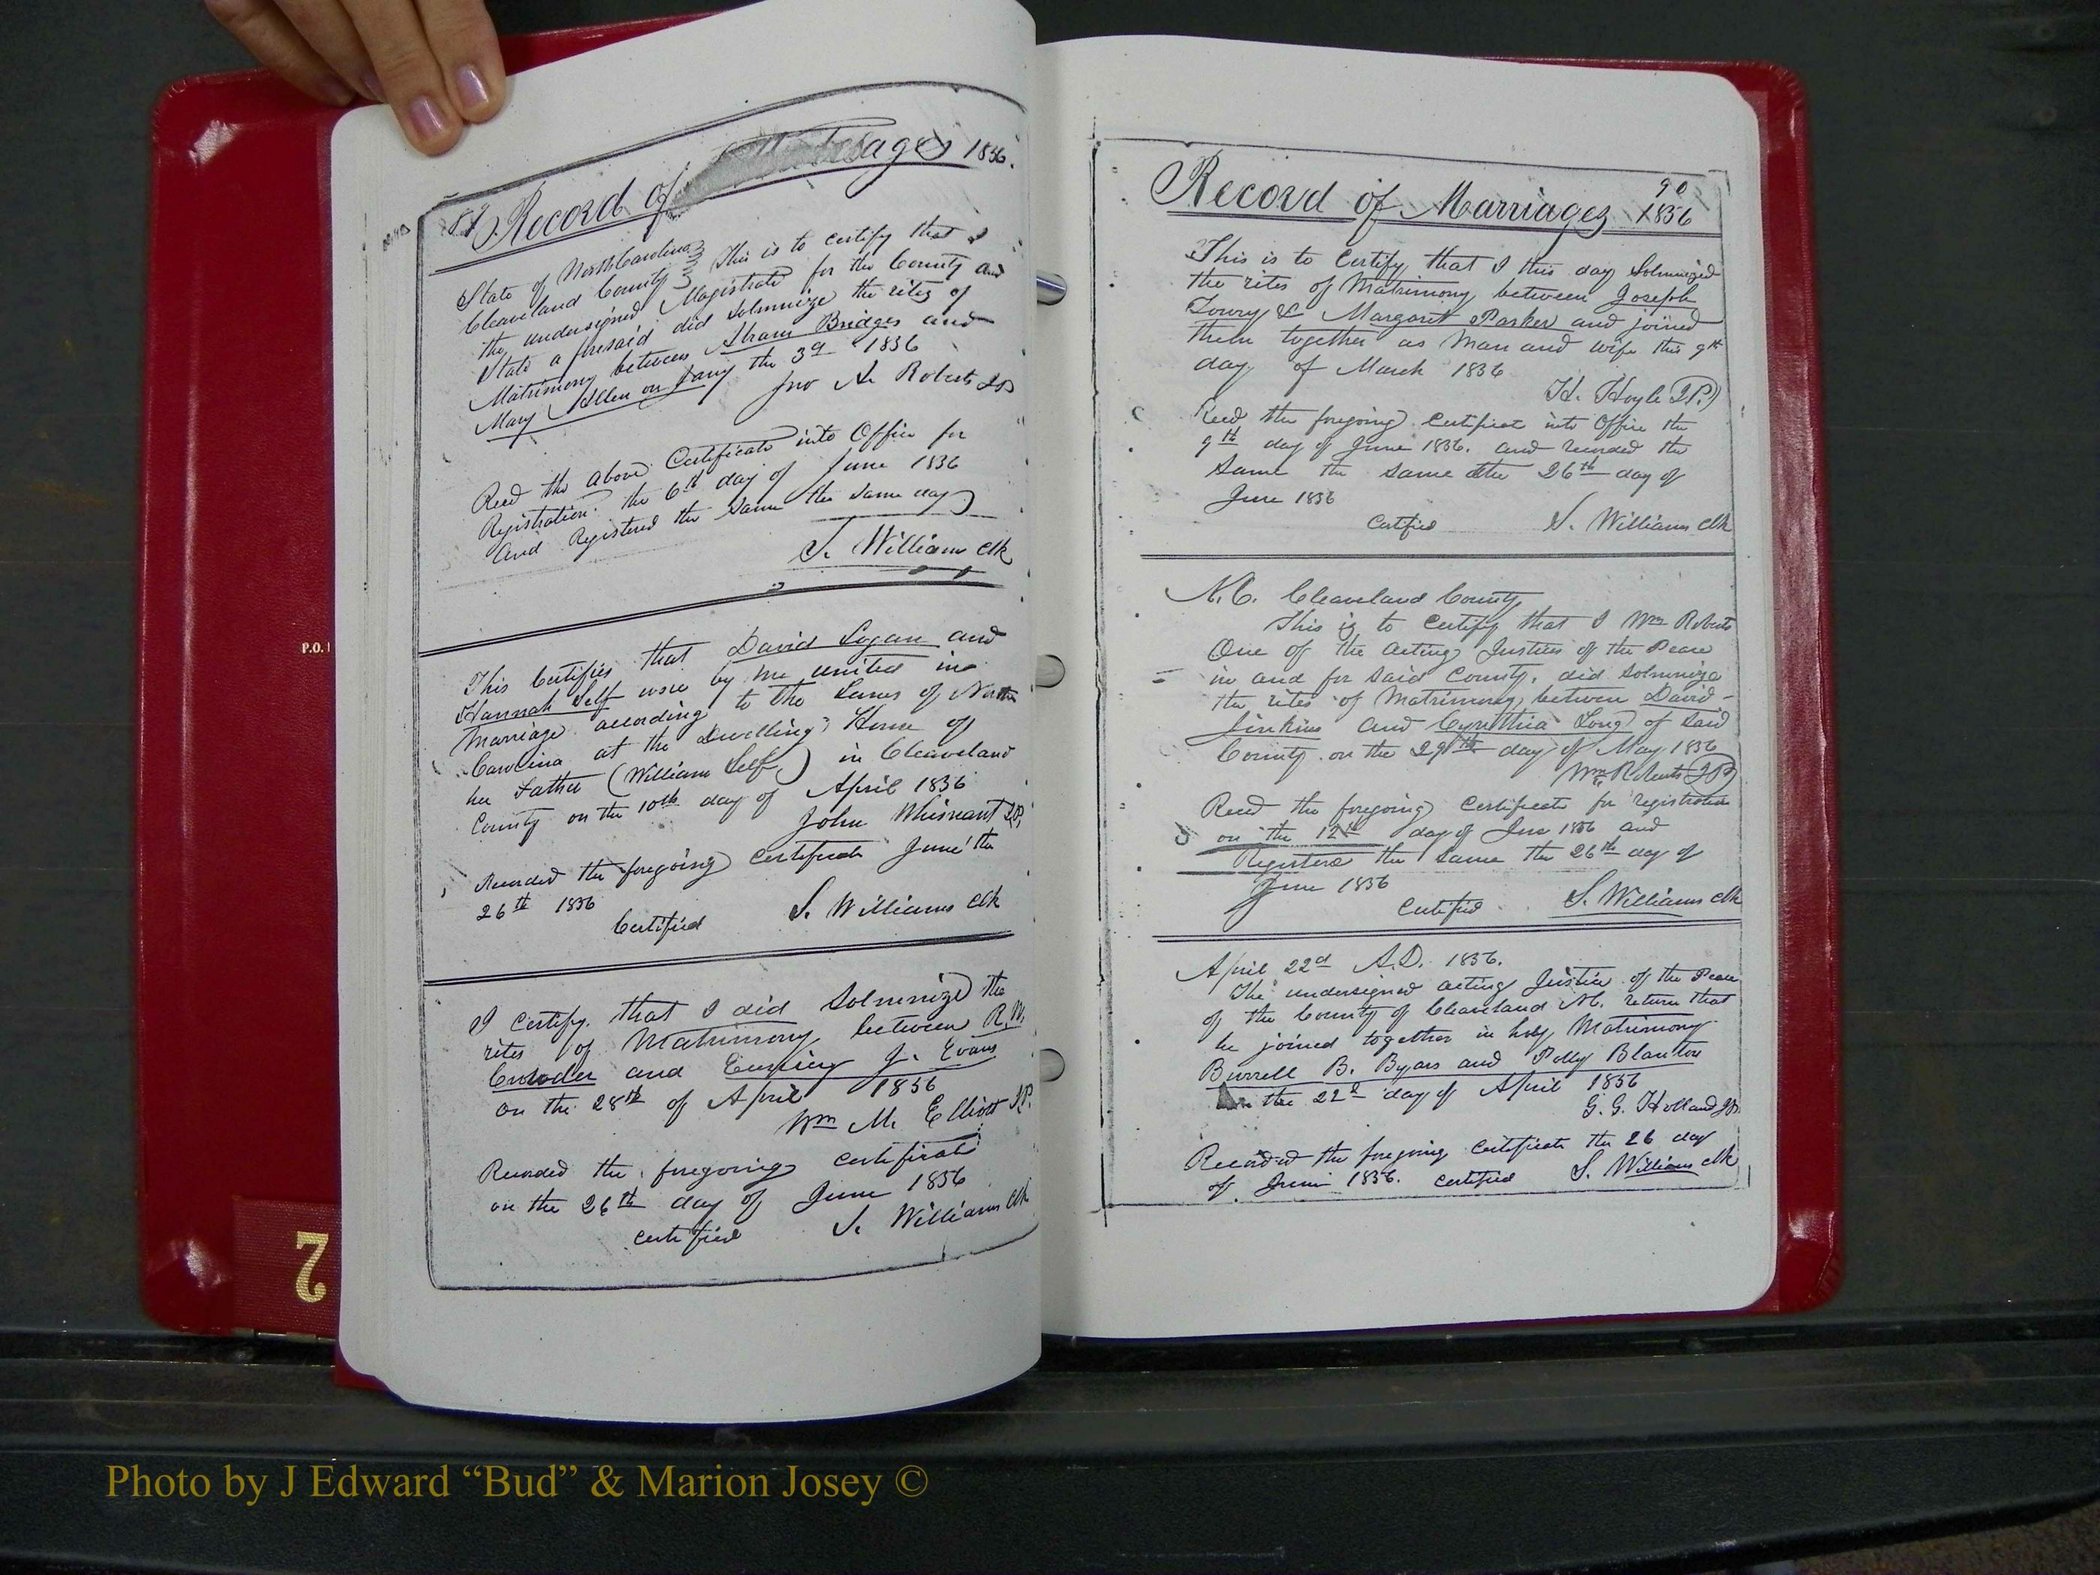 89 Record of Marriages 1836.
State of North Carolina
Cleaveland County } This is to certify that I
the undersigned Magistrate for the County and
State a foresaid did Solmnize the rites of
Matrimony between Abram Bridges and
Mary Allen on Jany the 3d 1836
Jno A. Roberts JP
Recd the above Certificate into Office for
Registration the 6th day of June 1836
and Registered the same the same day
S. Williams Clk
This Certifies that David Logan and
Hannah Self were by me united in
Marriage according to the Laws of North
Carolina at the Dwelling House of
her Father (William Self) in Cleaveland
County on the 10th day of April 1836
John Whisnant J.P.
Recorded the foregoing Certificate June the
26th 1836
Certified S. Williams Clk
I certify that I did Solmnize the
rites of Matrimony between R. W.
Crowder and J. Evans
on the 28th of April 1836
Wm M. Elliott J.P.
Recorded the foregoing certificate
on the 26th day of June 1836
certified S. Williams Clk
90
Record of Marriages 1836
This is to Certify that I this day Solmnized
the rites of Matrimony between Joseph
Lowry & Margaret Parker and joined
them together as Man and wife this 9th
day of March 1836
H. Hoyle J.P.
Recd the foregoing Certificate into Office the
9th day of June 1836. and recorded the
Same the same the 26th day of
June 1836
Certified S. Williams Clk
N.C. Cleaveland County
This is to Certify that I Wm Roberts
One of the acting Justices of the Peace
in and for said County, did solmnize
the rites of Matrimony between David
Jinkins and Cynthia Long of said
County on the 29th day of May 1836
Wm. Roberts JP
Recd the foregoing Certificate for registration
on the 12th day of June 1836 and
Registered the same the 26th day of
June 1836
Certified S. Williams Clk
April 22d A.D. 1836.
The undersigned acting Justice of the Peace
of the County of Cleaveland N.C. return that
he joined together in holy Matrimony
Burrell B. Byars and Polly Blanton
the 22d day of April 1836
G. G. Holland JP.
Recorded the foregoing Certificate the 26 day
of June 1836. certified S. Williams Clk
P.O.
2
Photo by J Edward “Bud” & Marion Josey ©